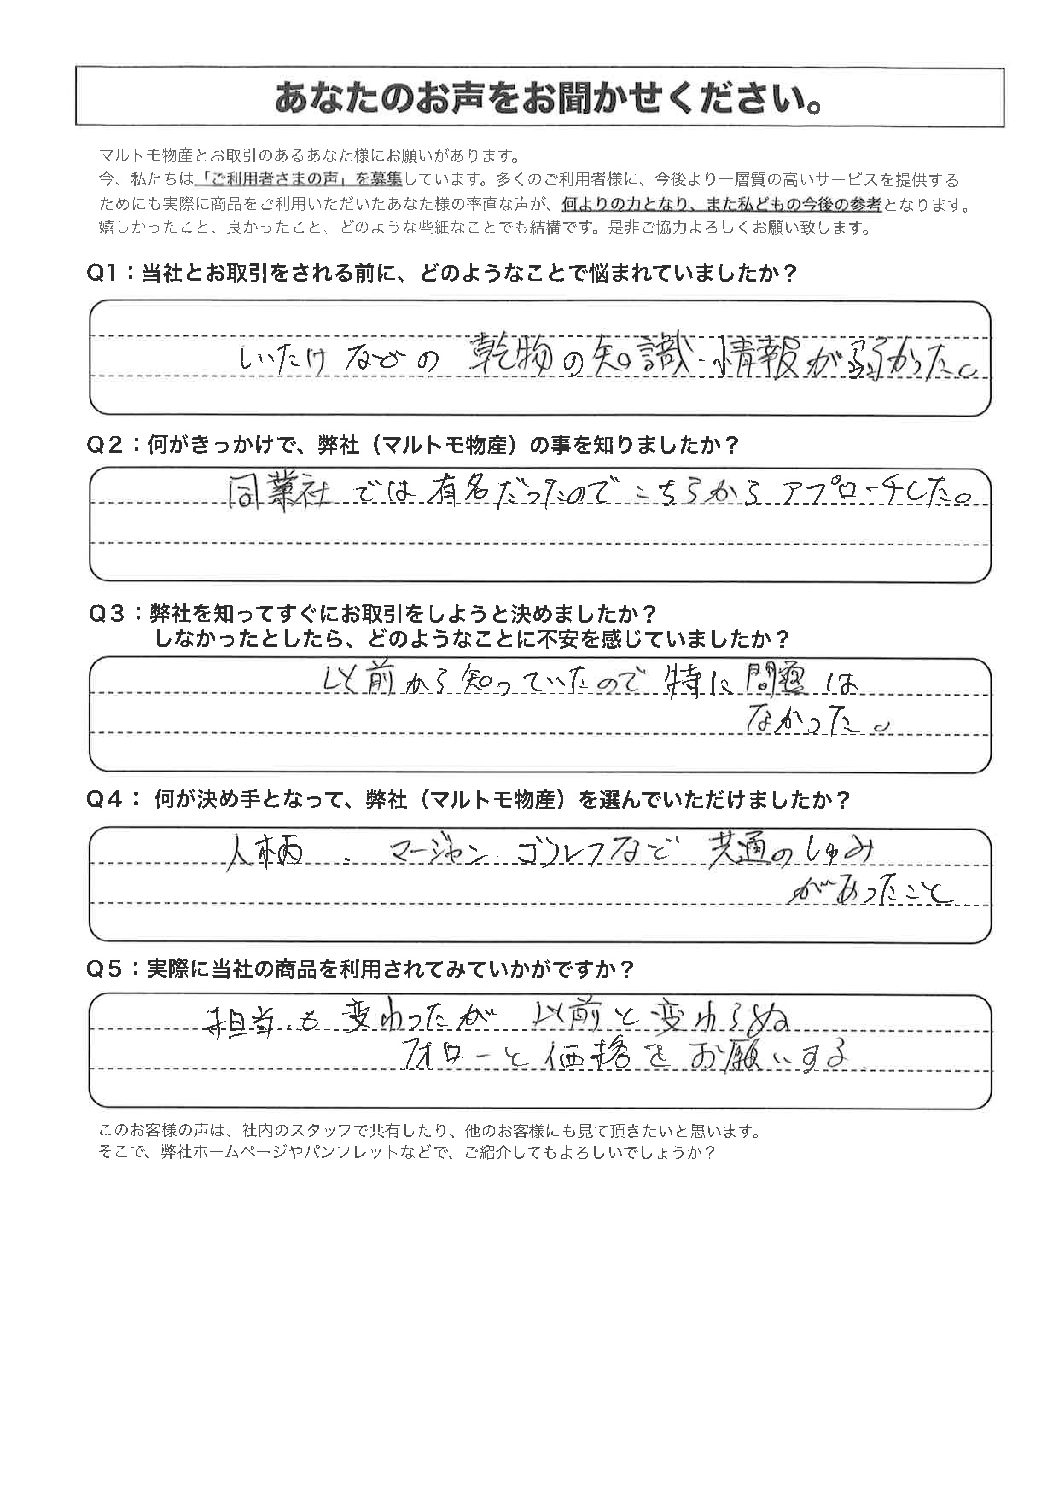 あなたのお声をお聞かせください。
マルトモ物産とお取引のあるあなた様にお願いがあります。
今、私たちは「ご利用者さまの声」を募集しています。多くのご利用者様に、今後より一層質の高いサービスを提供する
ためにも実際に商品をご利用いただいたあなた様の率直な声が、何よりの力となり、また私どもの今後の参考となります。
嬉しかったこと、良かったこと、どのような些細なことでも結構です。是非ご協力よろしくお願い致します。
Q1：当社とお取引をされる前に、どのようなことで悩まれていましたか？
しいたけなどの乾物の知識・情報が弱かった。
Q2：何がきっかけで、弊社（マルトモ物産）の事を知りましたか？
同業社では有名だったのでこちらからアプローチした。
Q3：弊社を知ってすぐにお取引をしようと決めましたか？
しなかったとしたら、どのようなことに不安を感じていましたか？
以前から知っていたので特に問題は
なかった。
Q4： 何が決め手となって、弊社（マルトモ物産）を選んでいただけましたか？
人柄、マージャン、ゴルフなど共通のしゅみ
があったこと
Q5：実際に当社の商品を利用されてみていかがですか？
担当も変わったが以前と変わらぬ
フォローと価格をお願いする
このお客様の声は、社内のスタッフで共有したり、他のお客様にも見て頂きたいと思います。
そこで、弊社ホームページやパンフレットなどで、ご紹介してもよろしいでしょうか？